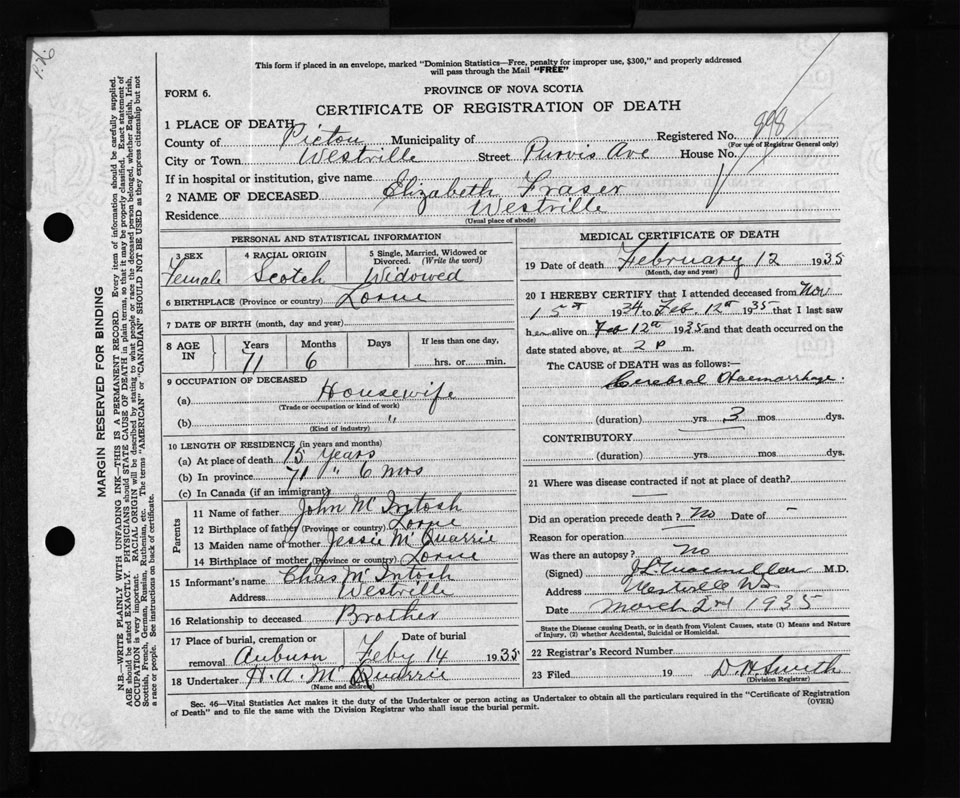 This form if placed in an envelope, marked "Dominion Statistics—Free, penalty for improper use, $300," and properly addressed
will pass through the Mail "FREE"
FORM 6.
PROVINCE OF NOVA SCOTIA
CERTIFICATE OF REGISTRATION OF DEATH
1 PLACE OF DEATH
County of Pictou Municipality of Registered No. 998
(For use of Registrar General only)
City or Town Westville Street Purvis Ave House No.
If in hospital or institution, give name
2 NAME OF DECEASED Elizabeth Fraser
Residence Westville
(Usual place of abode)
PERSONAL AND STATISTICAL INFORMATION
3 SEX 4 RACIAL ORIGIN 5 Single, Married, Widowed or
Divorced. (Write the word)
Female Scotch Widowed
6 BIRTHPLACE (Province or country) Lorne
7 DATE OF BIRTH (month, day and year)
8 AGE IN Years Months Days If less than one day,
71 6 hrs. or min.
9 OCCUPATION OF DECEASED
(a) Housewife
(Trade or occupation or kind of work)
(b) "
(Kind of industry)
10 LENGTH OF RESIDENCE (in years and months)
(a) At place of death 15 Years
(b) In province 71 " 6 mos
(c) In Canada (if an immigrant)
Parents
11 Name of father John McIntosh
12 Birthplace of father (Province or country) Lorne
13 Maiden name of mother Jessie McQuarrie
14 Birthplace of mother (Province or country) Lorne
15 Informant's name Chas McIntosh
Address Westville
16 Relationship to deceased Brother
17 Place of burial, cremation or Date of burial
removal Auburn Feby 14 1935
18 Undertaker H. A. McQuarrie
(Name and address)
MEDICAL CERTIFICATE OF DEATH
19 Date of death February 12 1935
(Month, day and year)
20 I HEREBY CERTIFY that I attended deceased from Nov
15th 1934 to Feb. 12th 1935 that I last saw
her alive on Feb 12th 1935 and that death occurred on the
date stated above, at 2 P m.
The CAUSE of DEATH was as follows:—
Cerebral Haemorrhage
(duration) yrs 3 mos dys.
CONTRIBUTORY
(duration) yrs. mos. dys.
21 Where was disease contracted if not at place of death?
—
Did an operation precede death? No Date of –
Reason for operation
Was there an autopsy? no
(Signed) M.D.
Address Westville NS
Date March 2nd 1935
State the Disease causing Death, or in death from Violent Causes, state (1) Means and Nature
of Injury, (2) whether Accidental, Suicidal or Homicidal.
22 Registrar's Record Number
23 Filed 19 D. H. Smith
(Division Registrar)
Sec. 46—Vital Statistics Act makes it the duty of the Undertaker or person acting as Undertaker to obtain all the particulars required in the "Certificate of Registration
of Death" and to file the same with the Division Registrar who shall issue the burial permit.
(OVER)
MARGIN RESERVED FOR BINDING
N.B.—WRITE PLAINLY WITH UNFADING INK—THIS IS A PERMANENT RECORD. Every item of information should be carefully supplied.
AGE should be stated EXACTLY. PHYSICIANS should STATE CAUSE OF DEATH in plain terms, so that it may be properly classified. Exact statement of
OCCUPATION is very important. RACIAL ORIGIN will be described by stating to what people or race the deceased person belonged, whether English, Irish,
Scottish, French, German, Russian, Ruthenian, etc. The terms "AMERICAN" or "CANADIAN" SHOULD NOT BE USED as they express citizenship but not
a race or people. See instructions on back of certificate.